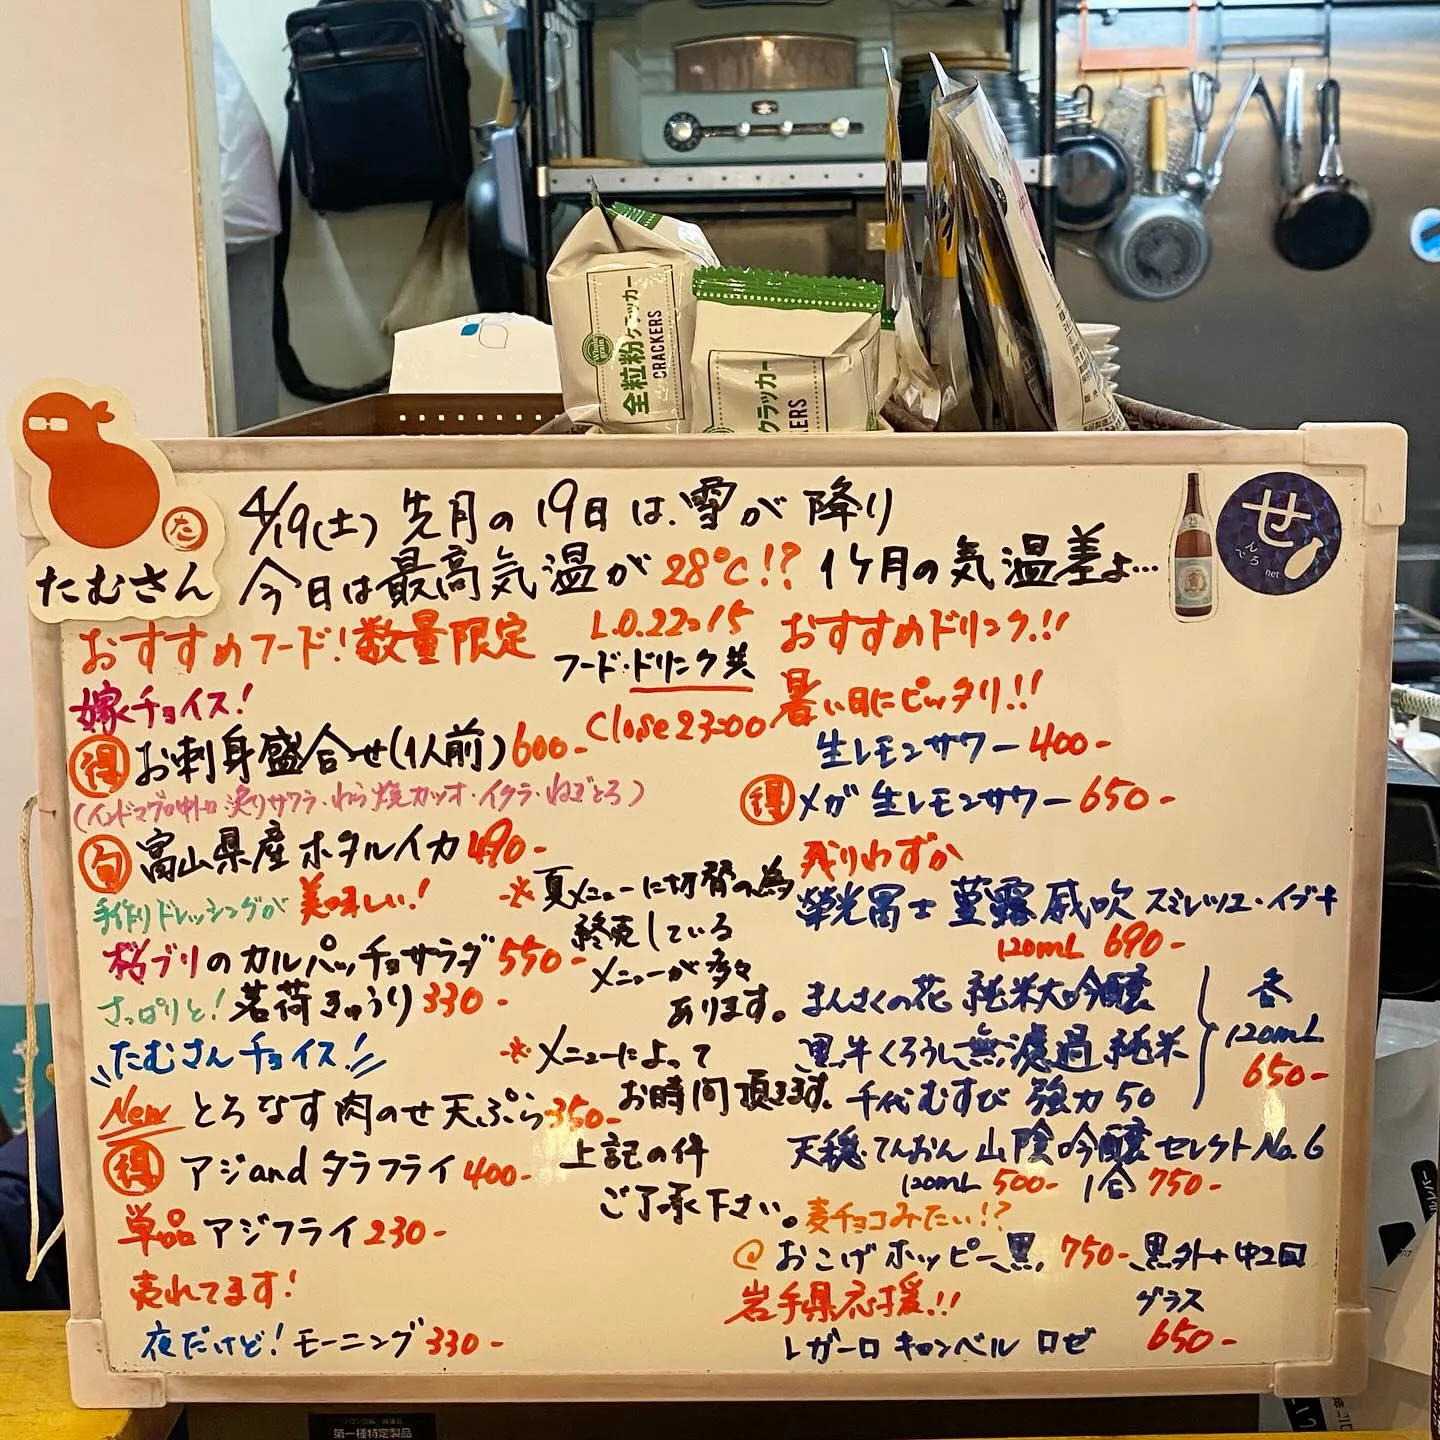 全粒粉クラッカー
CRACKERS
Whole grain
クラッカー
たむさん
た
せ
でんろく
net
4/19(土) 先月の19日は、雪が降り
今日は最高気温が28℃!? 1ヶ月の気温差よ…
おすすめフード!数量限定
嫁チョイス!
得 お刺身盛合せ(1人前)600-
(インドマグロ中トロ・炙りサワラ・わら焼カツオ・イクラ・ねぎとろ)
旬 富山県産ホタルイカ490-
手作りドレッシングが美味しい!
桜ブリのカルパッチョサラダ550-
さっぱりと!茗荷きゅうり330-
たむさんチョイス!
New とろなす肉のせ天ぷら350-
得 アジandタラフライ400-
単品アジフライ230-
売れてます!
夜だけど!モーニング330-
L.O.22:15
フード・ドリンク共
Close23:00
※夏メニューに切替の為
終売している
メニューが多々
あります。
※メニューによって
お時間頂きます。
上記の件
ご了承下さい。
おすすめドリンク!!
暑い日にピッタリ!!
生レモンサワー400-
得 メガ生レモンサワー650-
残りわずか
榮光冨士 菫露威吹 スミレツユ・イブキ
120mL 690-
まんさくの花 純米大吟醸
黒牛くろうし無濾過純米
千代むすび 強力50
各
120mL
650-
天穏・てんおん 山陰吟醸セレクトNo.6
120mL 500- 1合750-
麦チョコみたい!?
おこげホッピー黒 750- 黒外+中2回
岩手県応援!!
グラス
レガーロ キャンベル ロゼ 650-
第一種特定製品